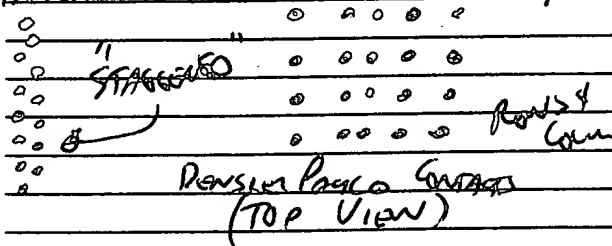 "STAGGERED"
ROWS &
DENSELY PACKED CONTACTS
(TOP VIEW)